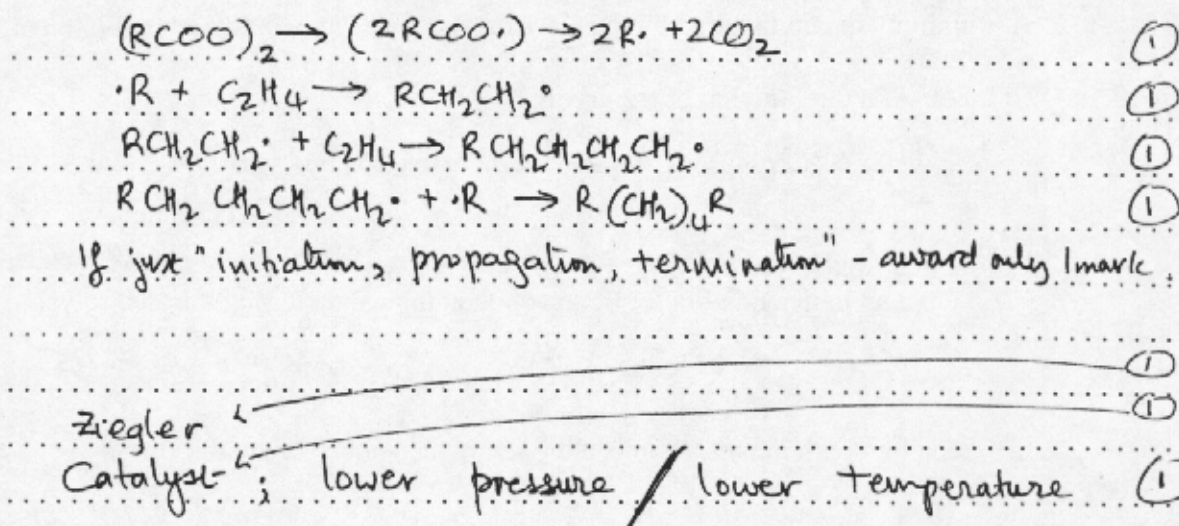 (RCOO)₂ → (2RCOO•) → 2R• + 2CO₂ ①
•R + C₂H₄ → RCH₂CH₂• ①
RCH₂CH₂• + C₂H₄ → RCH₂CH₂CH₂CH₂• ①
RCH₂CH₂CH₂CH₂• + •R → R(CH₂)₄R ①
If just "initiation, propagation, termination" - award only 1 mark.
①
①
Ziegler
Catalyst ; lower pressure / lower temperature ①